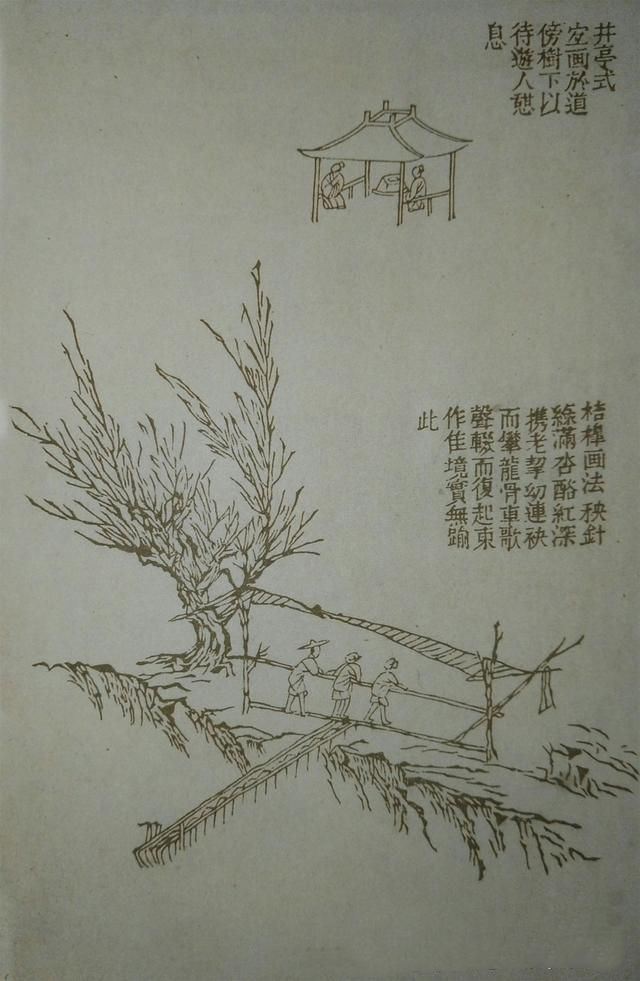 井亭式
宐画於道
傍樹下以
待遊人憇
息
桔槔画法秧針
綠滿杏酪紅深
携老挈幼連袂
而攀龍骨車歌
聲輟而復起東
作佳境實無踰
此